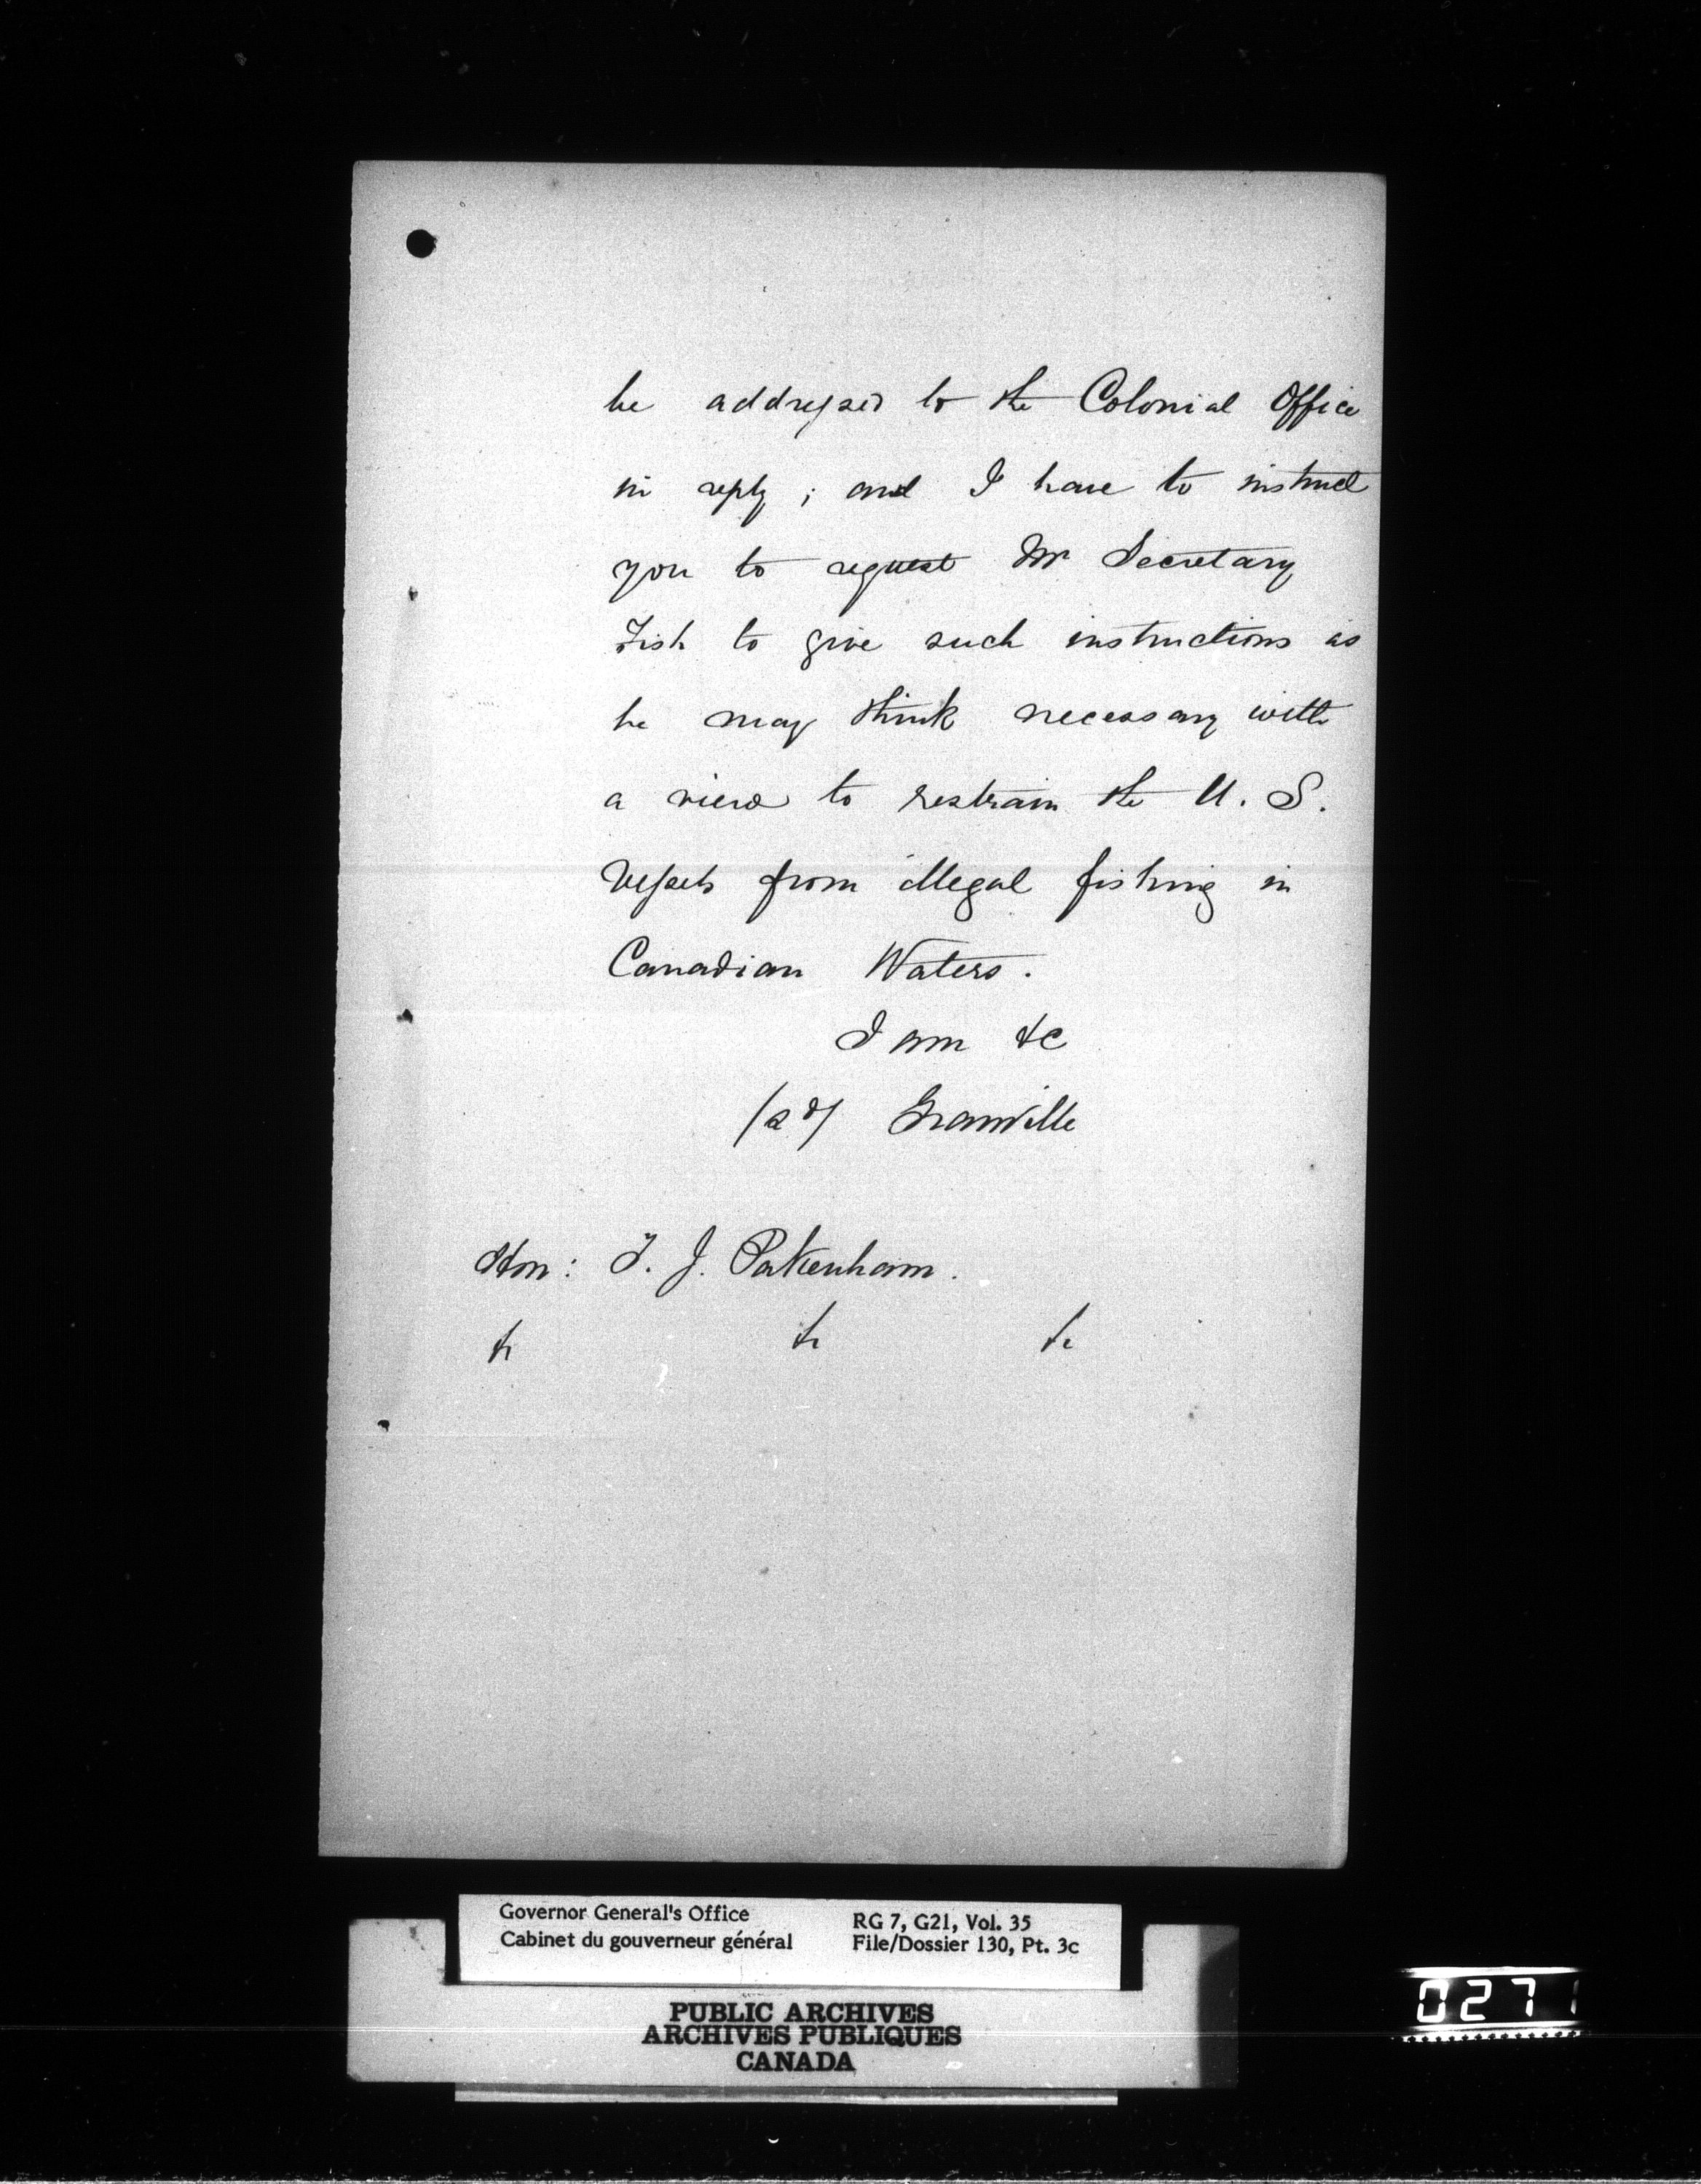 be addressed to the Colonial Office
in reply; and I have to instruct
you to request Mr Secretary
Fish to give such instructions as
he may think necessary with
a view to restrain the U. S.
Vessels from illegal fishing in
Canadian Waters.
I am &c
/sd/ Granville
Hon: F. J. Pakenham.
&c &c &c
Governor General's Office
Cabinet du gouverneur général
RG 7, G21, Vol. 35
File/Dossier 130, Pt. 3c
PUBLIC ARCHIVES
ARCHIVES PUBLIQUES
CANADA
0271